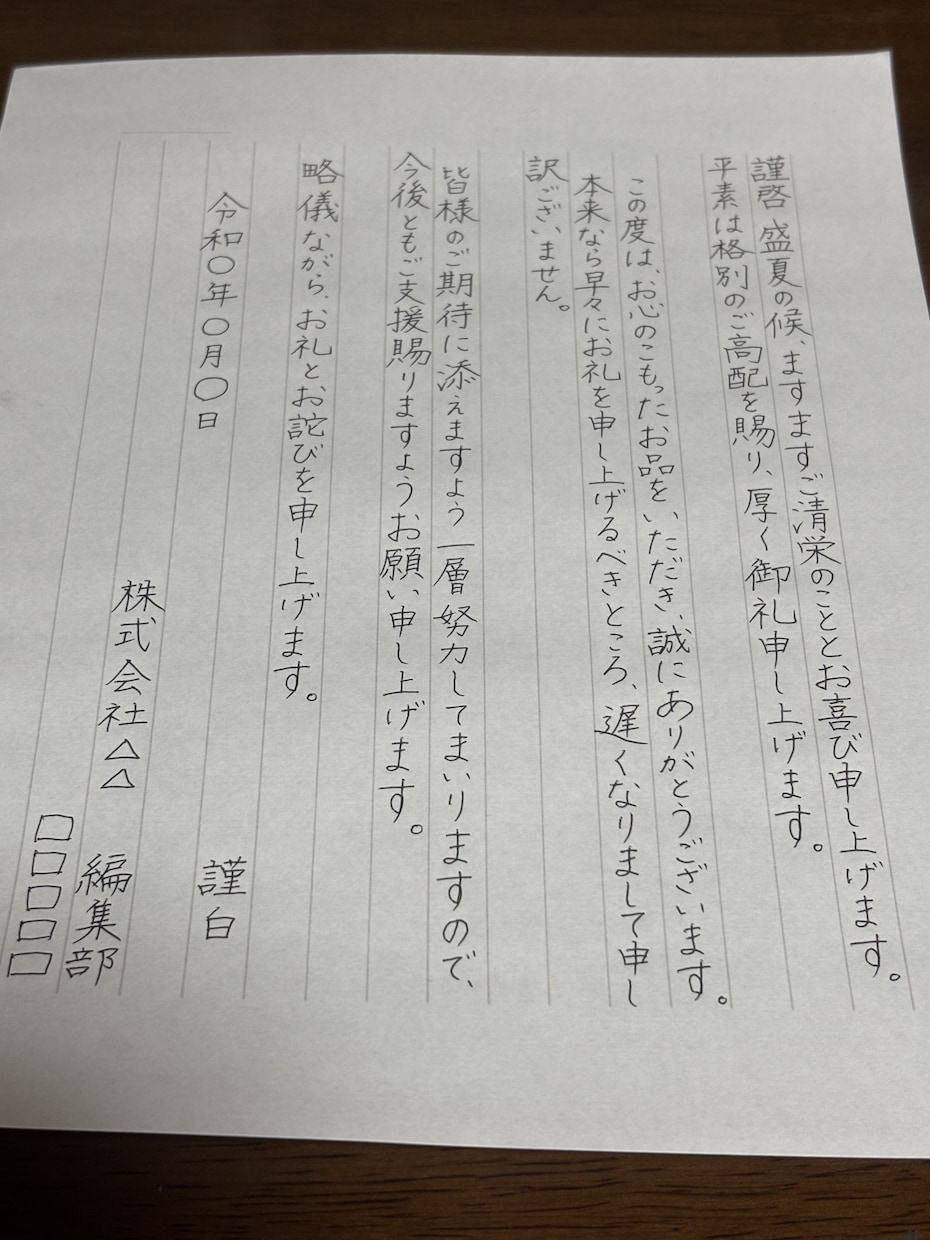 謹啓 盛夏の候、ますますご清栄のこととお喜び申し上げます。
平素は格別のご高配を賜り、厚く御礼申し上げます。
この度は、お心のこもったお品をいただき、誠にありがとうございます。
本来なら早々にお礼を申し上げるべきところ、遅くなりまして申し
訳ございません。
皆様のご期待に添えますよう一層努力してまいりますので、
今後ともご支援賜りますようお願い申し上げます。
略儀ながら、お礼とお詫びを申し上げます。
謹白
令和〇年〇月〇日
株式会社△△
編集部
□□□□□